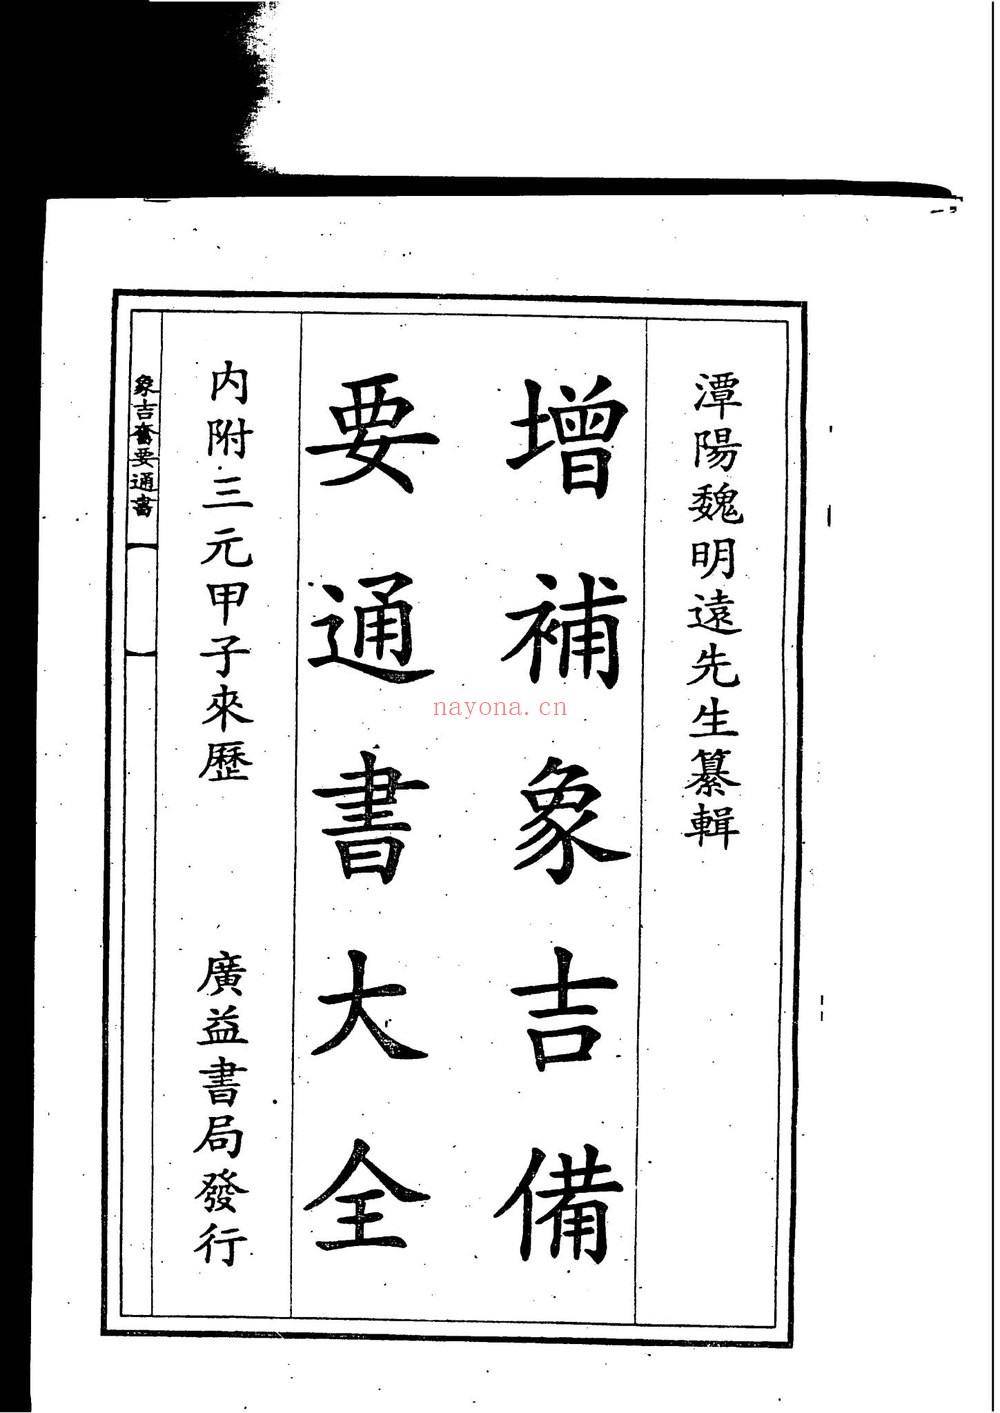 潭陽魏明遠先生纂輯
增補象吉備
要通書大全
內附三元甲子來歷
廣益書局發行
象吉備要通書
nayona.cn